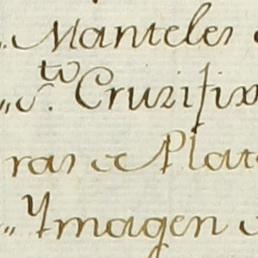 „ Manteles
„ S.to Crucifix
ras de Plat
„ Ymagen d